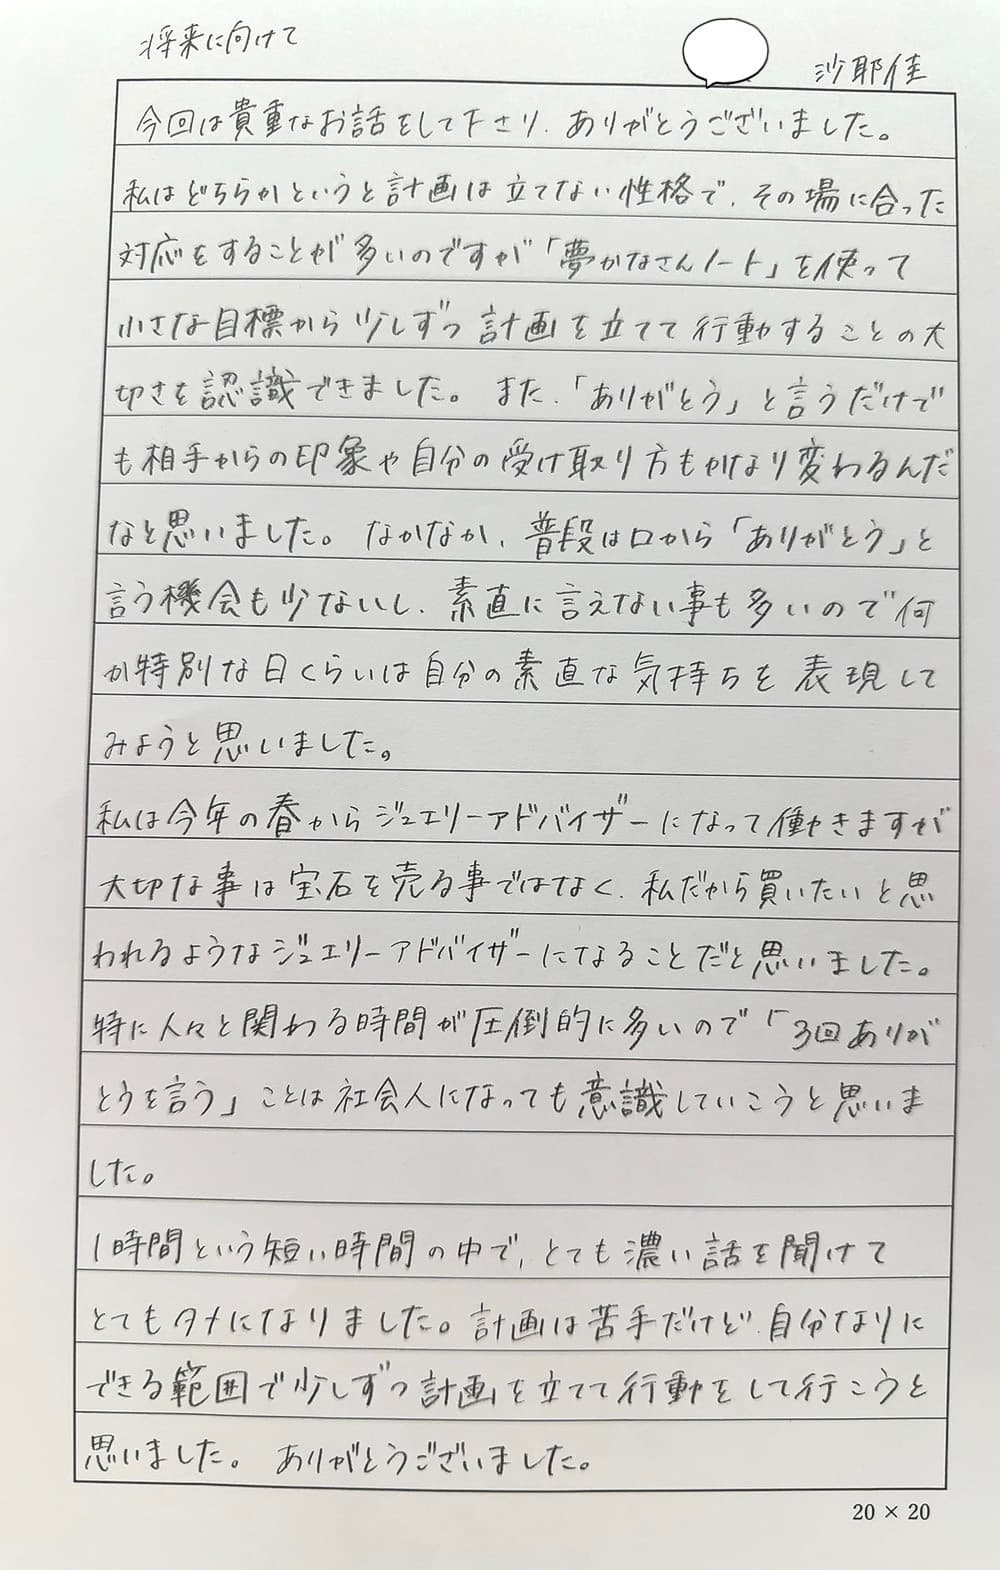 将来に向けて
沙耶佳
今回は貴重なお話をして下さり、ありがとうございました。
私はどちらかというと計画は立てない性格で、その場に合った
対応をすることが多いのですが「夢かなさんノート」を使って
小さな目標から少しずつ計画を立てて行動することの大
切さを認識できました。また、「ありがとう」と言うだけで
も相手からの印象や自分の受け取り方もかなり変わるんだ
なと思いました。なかなか、普段は口から「ありがとう」と
言う機会も少ないし、素直に言えない事も多いので何
か特別な日くらいは自分の素直な気持ちを表現して
みようと思いました。
私は今年の春からジュエリーアドバイザーになって働きますが
大切な事は宝石を売る事ではなく、私だから買いたいと思
われるようなジュエリーアドバイザーになることだと思いました。
特に人々と関わる時間が圧倒的に多いので「3回ありが
とうを言う」ことは社会人になっても意識していこうと思いま
した。
1時間という短い時間の中で、とても濃い話を聞けて
とてもタメになりました。計画は苦手だけど、自分なりに
できる範囲で少しずつ計画を立てて行動をして行こうと
思いました。ありがとうございました。
20 × 20